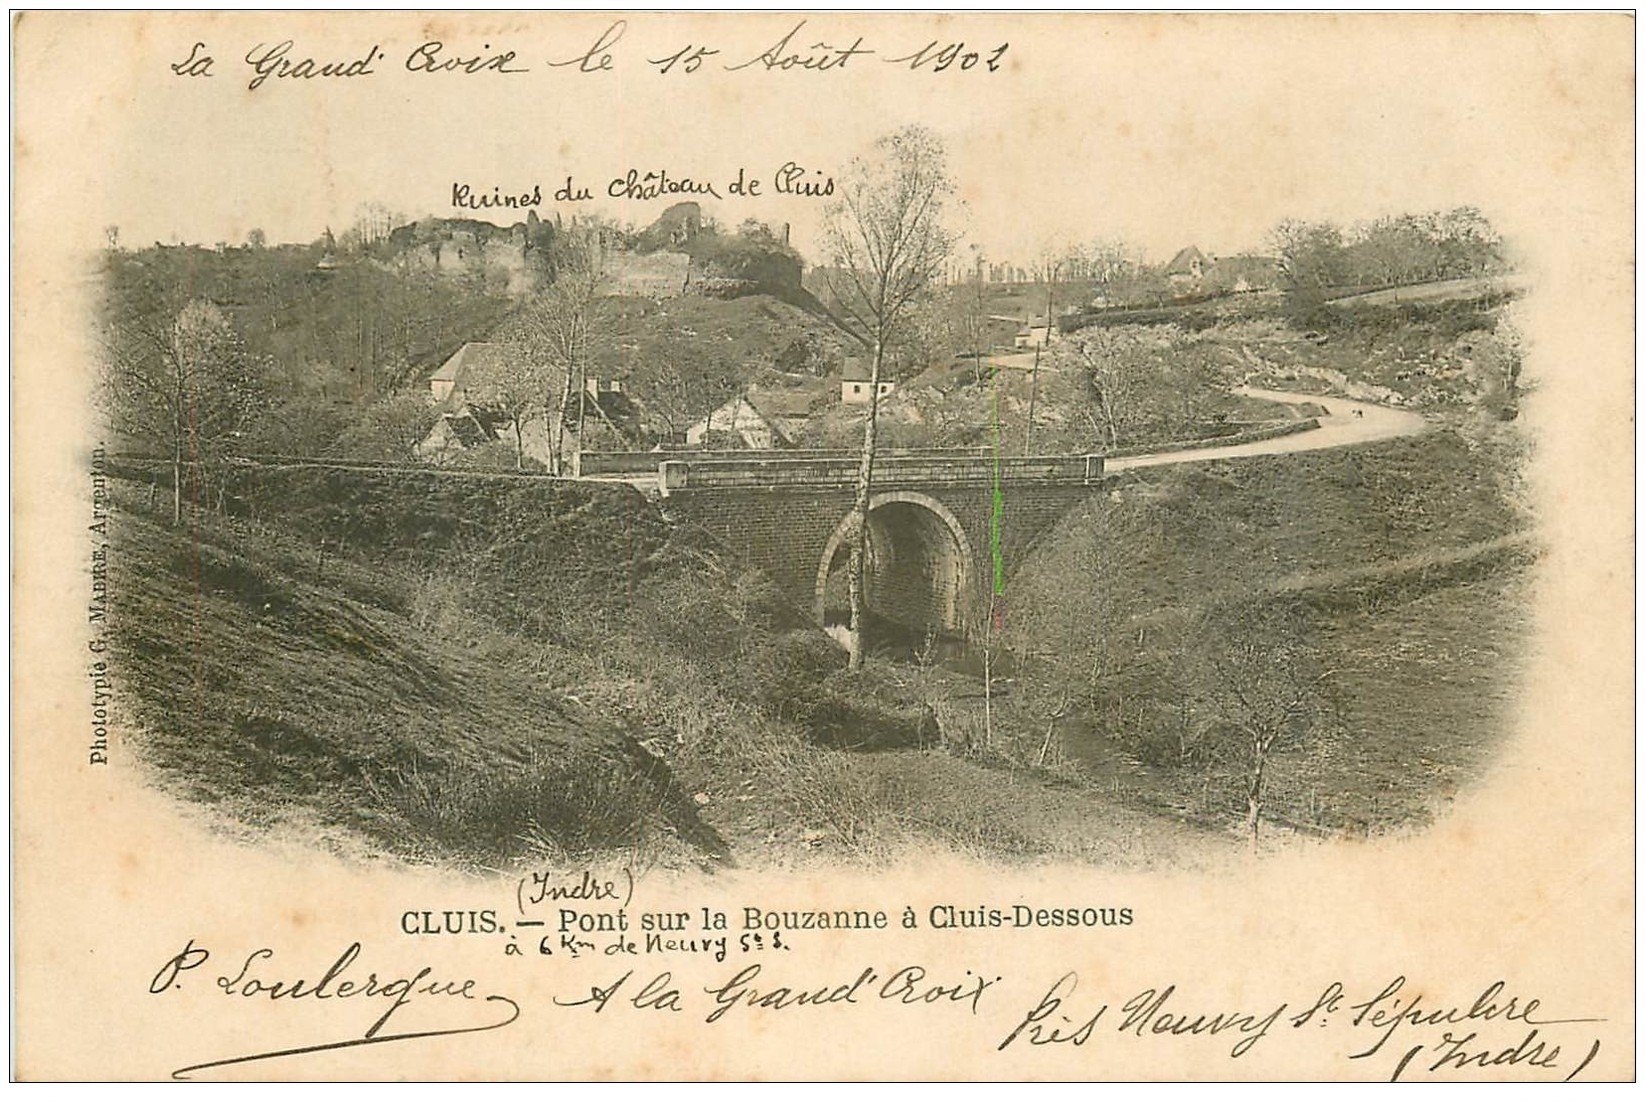 La Grand' Croix le 15 Août 1902
Ruines du Château de Cluis
Phototypie G. MABIRE, Argenton.
(Indre)
CLUIS. — Pont sur la Bouzanne à Cluis-Dessous
à 6 Km de Neuvy St S.
P. Loulergue A la Grand' Croix
Près Neuvy St Sépulcre
(Indre)